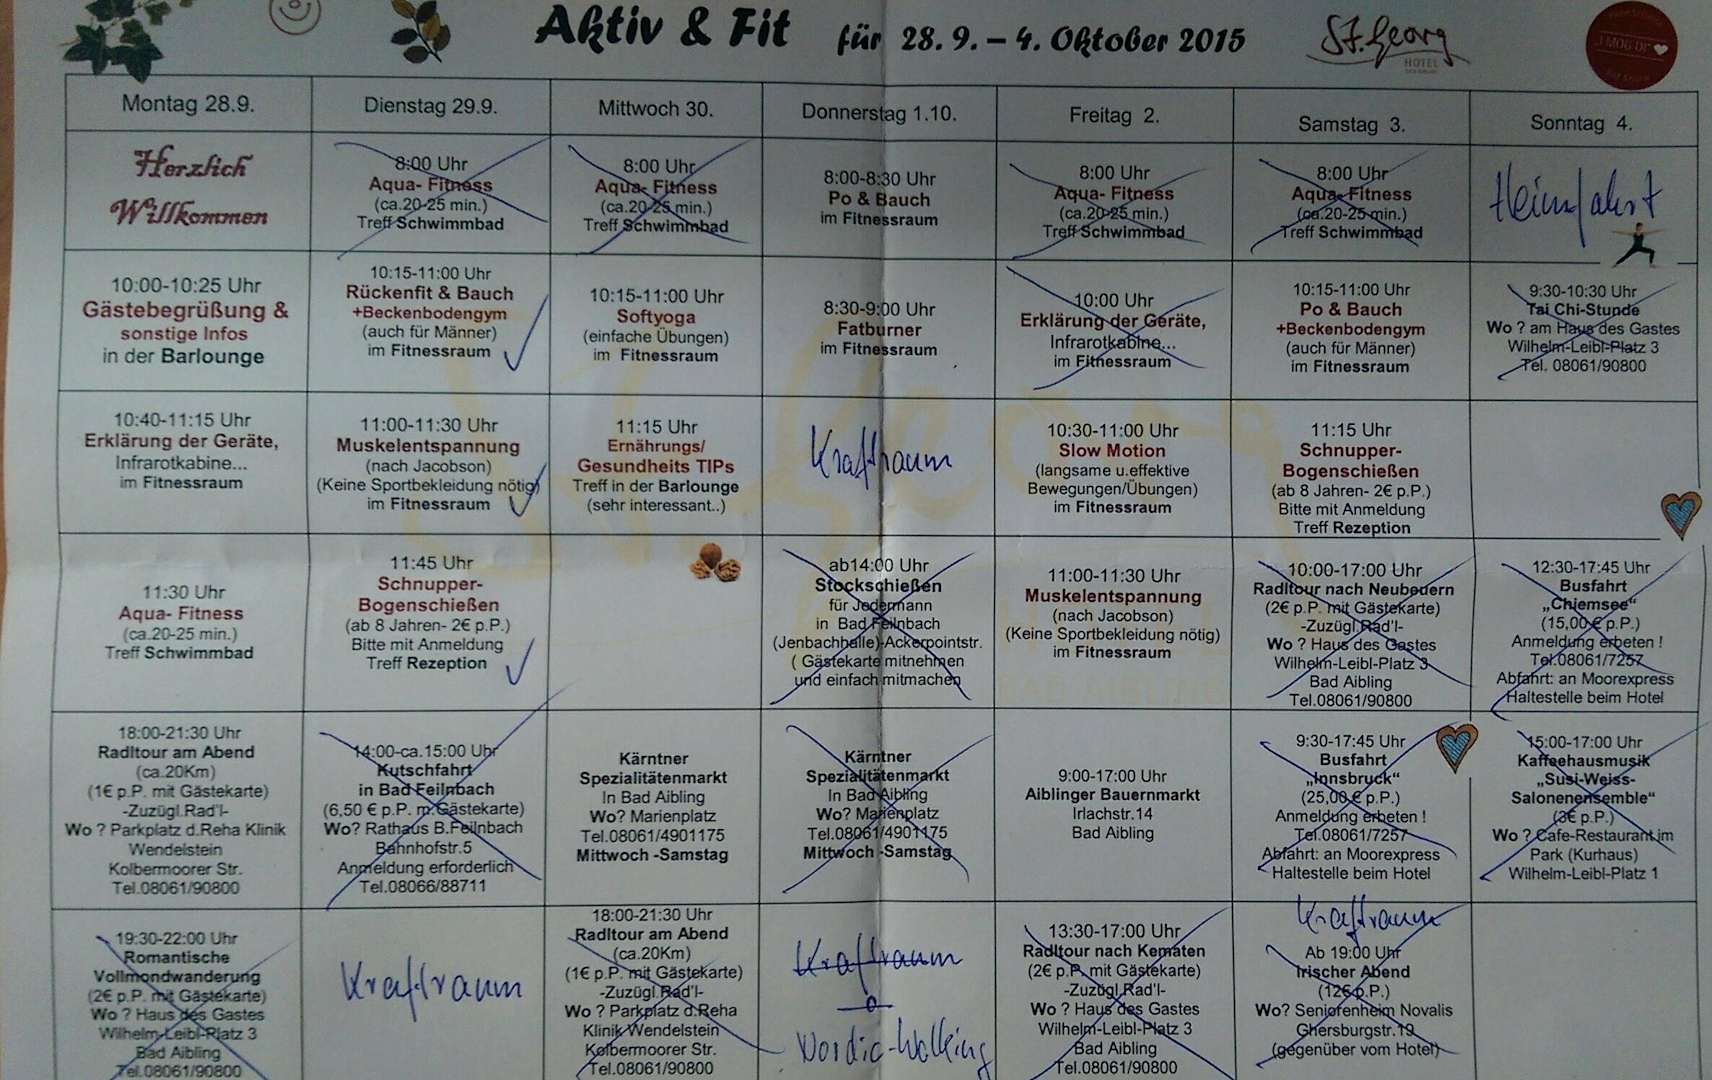 Aktiv & Fit für 28. 9. – 4. Oktober 2015
St. Georg
HOTEL
I MOG DI
Montag 28.9.
Dienstag 29.9.
Mittwoch 30.
Donnerstag 1.10.
Freitag 2.
Samstag 3.
Sonntag 4.
Herzlich
Willkommen
8:00 Uhr
Aqua- Fitness
(ca.20-25 min.)
Treff Schwimmbad
8:00 Uhr
Aqua- Fitness
(ca.20-25 min.)
Treff Schwimmbad
8:00-8:30 Uhr
Po & Bauch
im Fitnessraum
8:00 Uhr
Aqua- Fitness
(ca.20-25 min.)
Treff Schwimmbad
8:00 Uhr
Aqua- Fitness
(ca.20-25 min.)
Treff Schwimmbad
Heimfahrt
10:00-10:25 Uhr
Gästebegrüßung &
sonstige Infos
in der Barlounge
10:15-11:00 Uhr
Rückenfit & Bauch
+Beckenbodengym
(auch für Männer)
im Fitnessraum
10:15-11:00 Uhr
Softyoga
(einfache Übungen)
im Fitnessraum
8:30-9:00 Uhr
Fatburner
im Fitnessraum
10:00 Uhr
Erklärung der Geräte,
Infrarotkabine...
im Fitnessraum
10:15-11:00 Uhr
Po & Bauch
+Beckenbodengym
(auch für Männer)
im Fitnessraum
9:30-10:30 Uhr
Tai Chi-Stunde
Wo ? am Haus des Gastes
Wilhelm-Leibl-Platz 3
Tel. 08061/90800
10:40-11:15 Uhr
Erklärung der Geräte,
Infrarotkabine...
im Fitnessraum
11:00-11:30 Uhr
Muskelentspannung
(nach Jacobson)
(Keine Sportbekleidung nötig)
im Fitnessraum
11:15 Uhr
Ernährungs/
Gesundheits TIPs
Treff in der Barlounge
(sehr interessant..)
Kraftraum
10:30-11:00 Uhr
Slow Motion
(langsame u.effektive
Bewegungen/Übungen)
im Fitnessraum
11:15 Uhr
Schnupper-
Bogenschießen
(ab 8 Jahren- 2€ p.P.)
Bitte mit Anmeldung
Treff Rezeption
11:30 Uhr
Aqua- Fitness
(ca.20-25 min.)
Treff Schwimmbad
11:45 Uhr
Schnupper-
Bogenschießen
(ab 8 Jahren- 2€ p.P.)
Bitte mit Anmeldung
Treff Rezeption
ab14:00 Uhr
Stockschießen
für Jedermann
in Bad Feilnbach
(Jenbachhalle)-Ackerpointstr.
( Gästekarte mitnehmen
und einfach mitmachen
11:00-11:30 Uhr
Muskelentspannung
(nach Jacobson)
(Keine Sportbekleidung nötig)
im Fitnessraum
10:00-17:00 Uhr
Radltour nach Neubeuern
(2€ p.P. mit Gästekarte)
-Zuzügl.Rad'l-
Wo ? Haus des Gastes
Wilhelm-Leibl-Platz 3
Bad Aibling
Tel.08061/90800
12:30-17:45 Uhr
Busfahrt
„Chiemsee“
(15,00 € p.P.)
Anmeldung erbeten !
Tel.08061/7257
Abfahrt: an Moorexpress
Haltestelle beim Hotel
BAD AIBLING
18:00-21:30 Uhr
Radltour am Abend
(ca.20Km)
(1€ p.P. mit Gästekarte)
-Zuzügl.Rad'l-
Wo ? Parkplatz d.Reha Klinik
Wendelstein
Kolbermoorer Str.
Tel.08061/90800
14:00-ca.15:00 Uhr
Kutschfahrt
in Bad Feilnbach
(6,50 € p.P. m.Gästekarte)
Wo? Rathaus B.Feilnbach
Bahnhofstr.5
Anmeldung erforderlich
Tel.08066/88711
Kärntner
Spezialitätenmarkt
In Bad Aibling
Wo? Marienplatz
Tel.08061/4901175
Mittwoch -Samstag
Kärntner
Spezialitätenmarkt
In Bad Aibling
Wo? Marienplatz
Tel.08061/4901175
Mittwoch -Samstag
9:00-17:00 Uhr
Aiblinger Bauernmarkt
Irlachstr.14
Bad Aibling
9:30-17:45 Uhr
Busfahrt
„Innsbruck“
(25,00 € p.P.)
Anmeldung erbeten !
Tel.08061/7257
Abfahrt: an Moorexpress
Haltestelle beim Hotel
15:00-17:00 Uhr
Kaffeehausmusik
„Susi-Weiss-
Salonenensemble“
(3€ p.P.)
Wo ? Cafe-Restaurant im
Park (Kurhaus)
Wilhelm-Leibl-Platz 1
19:30-22:00 Uhr
Romantische
Vollmondwanderung
(2€ p.P. mit Gästekarte)
Wo ? Haus des Gastes
Wilhelm-Leibl-Platz 3
Bad Aibling
Tel.08061/90800
Kraftraum
18:00-21:30 Uhr
Radltour am Abend
(ca.20Km)
(1€ p.P. mit Gästekarte)
-Zuzügl.Rad'l-
Wo ? Parkplatz d.Reha
Klinik Wendelstein
Kolbermoorer Str.
Tel.08061/90800
Kraftraum
Nordic-Walking
13:30-17:00 Uhr
Radltour nach Kematen
(2€ p.P. mit Gästekarte)
-Zuzügl.Rad'l-
Wo ? Haus des Gastes
Wilhelm-Leibl-Platz 3
Bad Aibling
Tel.08061/90800
Kraftraum
Ab 19:00 Uhr
Irischer Abend
(12€ p.P.)
Wo? Seniorenheim Novalis
Ghersburgstr.19
(gegenüber vom Hotel)